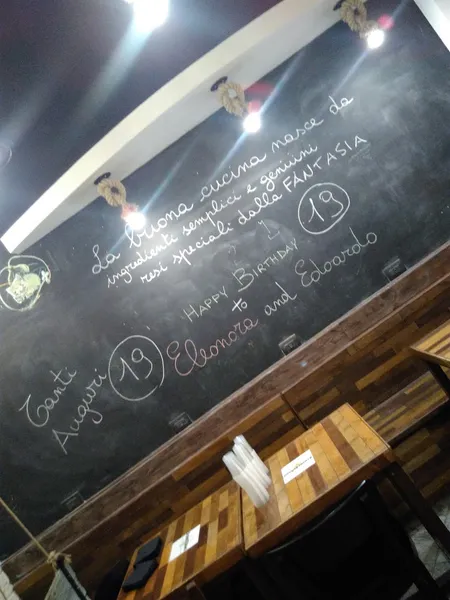 La buona cucina nasce da
ingredienti semplici e genuini
resi speciali dalla FANTASIA
19
HAPPY BIRTHDAY
to
Eleonora and Edoardo
19
Tanti
Auguri